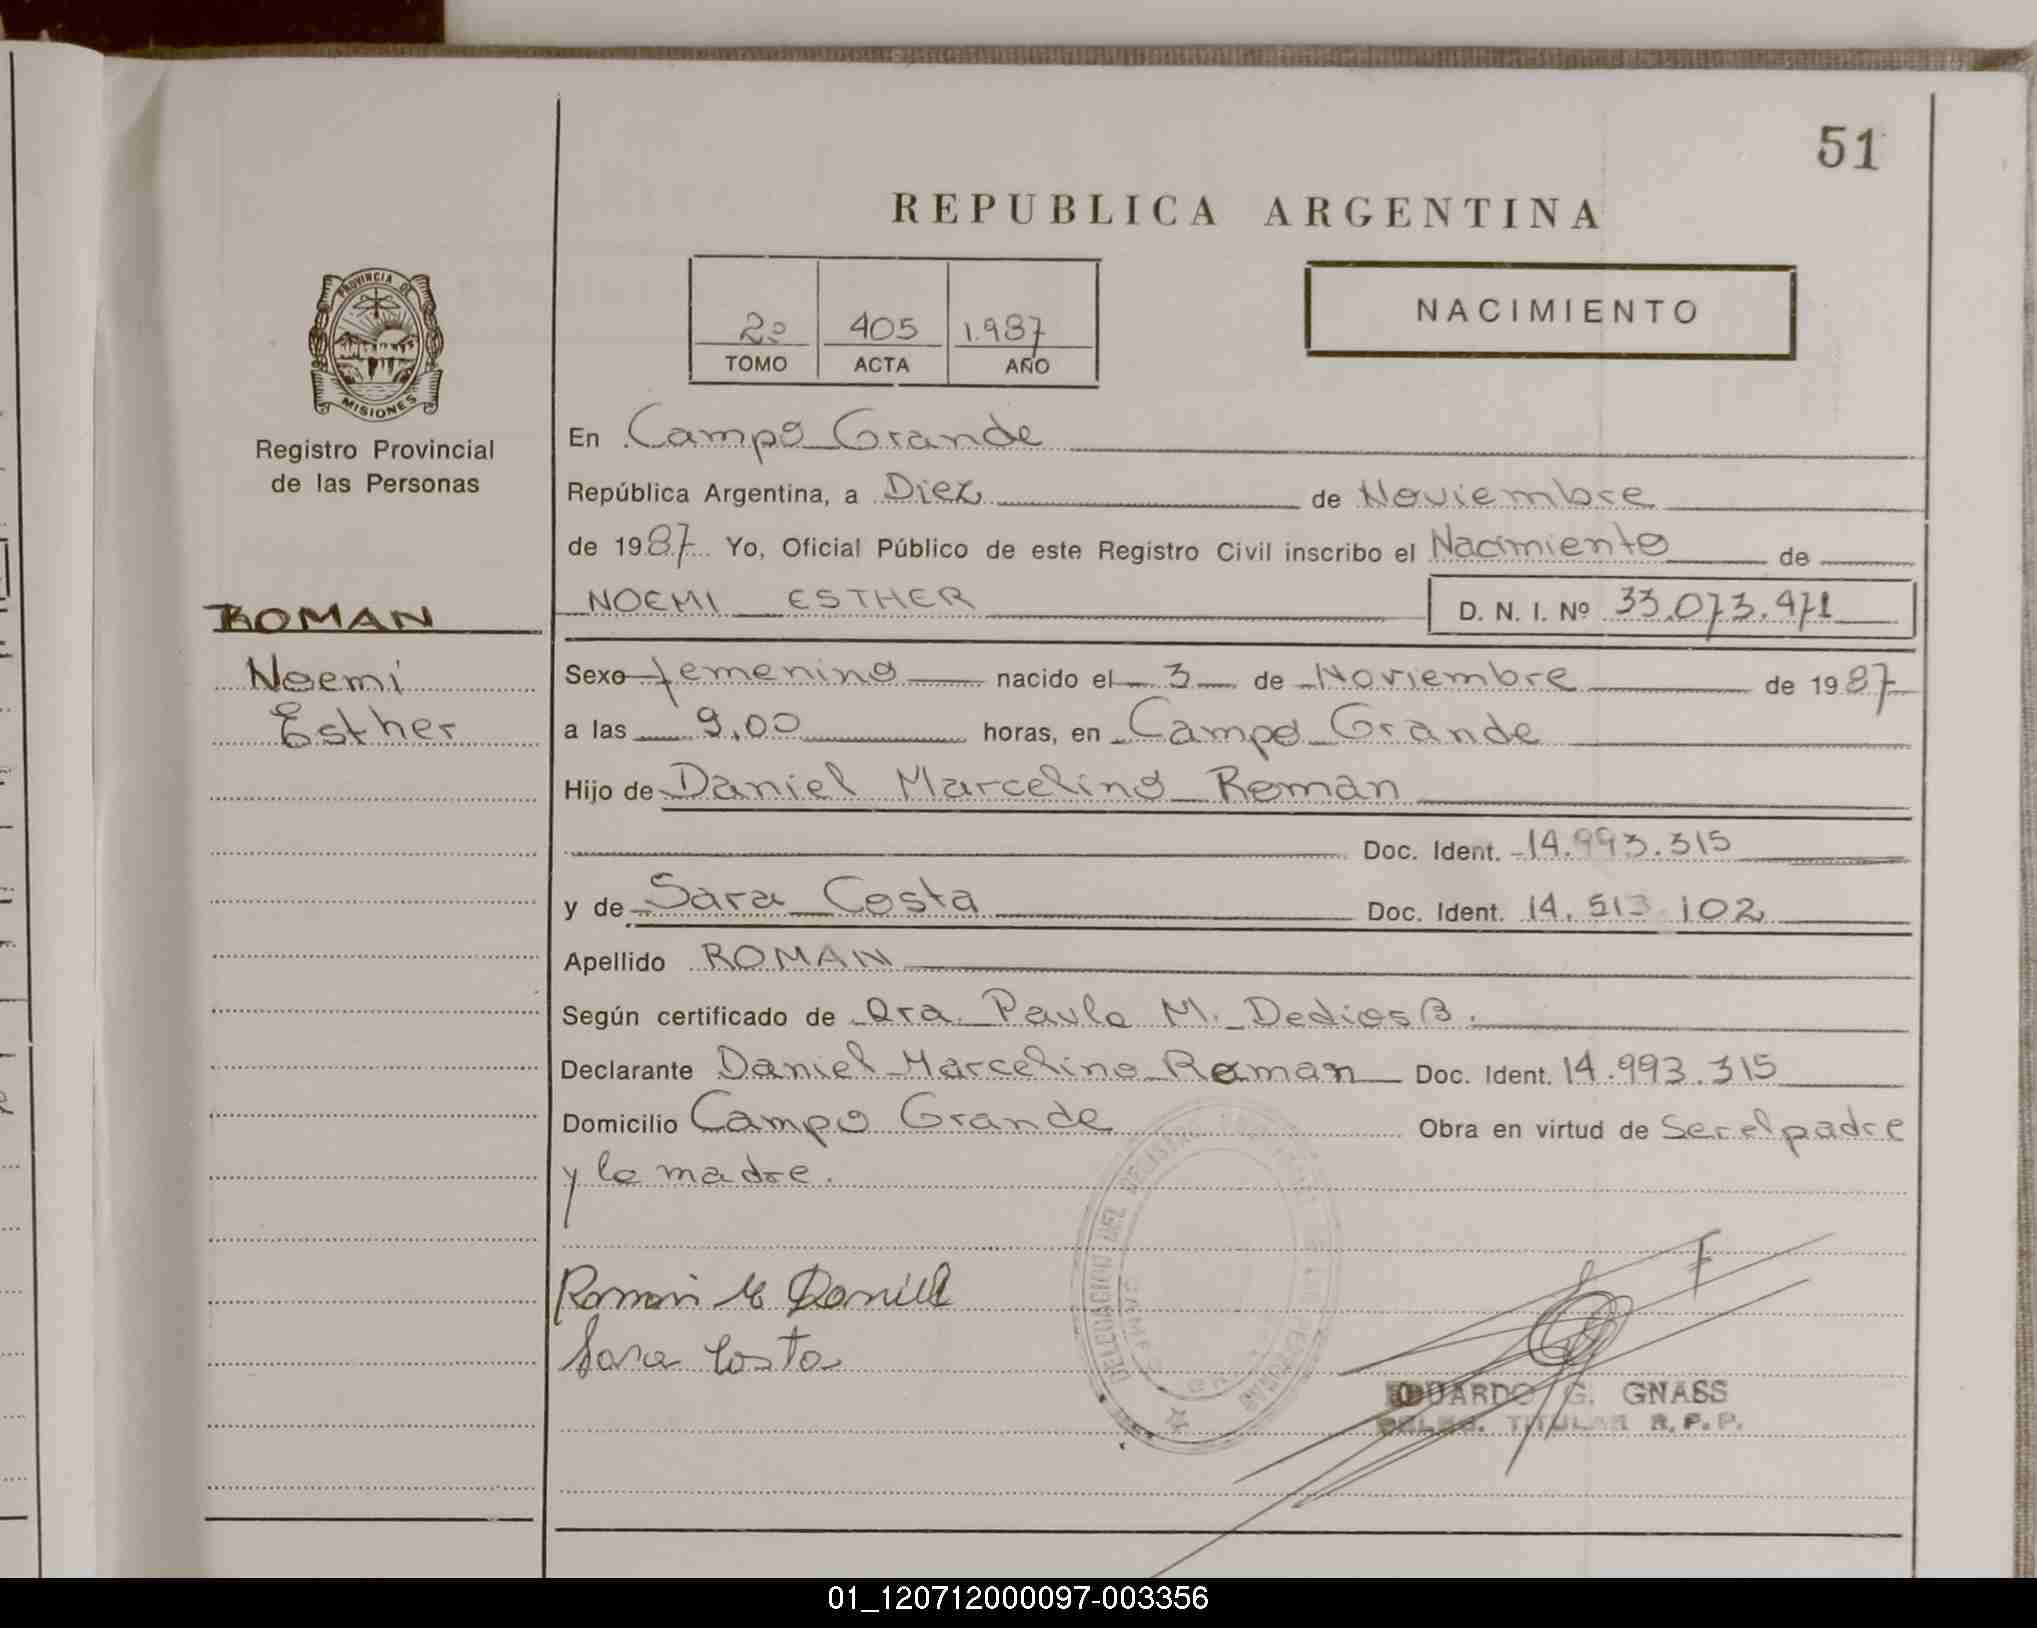 51
REPUBLICA ARGENTINA
PROVINCIA DE
MISIONES
Registro Provincial
de las Personas
2º 405 1.987
TOMO ACTA AÑO
NACIMIENTO
En Campo Grande
República Argentina, a Diez de Noviembre
de 1987 Yo, Oficial Público de este Registro Civil inscribo el Nacimiento de
NOEMI ESTHER D. N. I. Nº 33.073.471
ROMAN
Noemi
Esther
Sexo femenino nacido el 3 de Noviembre de 1987
a las 9,00 horas, en Campo Grande
Hijo de Daniel Marcelino Roman
Doc. Ident. 14.993.315
y de Sara Costa Doc. Ident. 14.513.102
Apellido ROMAN
Según certificado de Dra. Paula M. Dedios B.
Declarante Daniel Marcelino Roman Doc. Ident. 14.993.315
Domicilio Campo Grande Obra en virtud de Ser el padre
y la madre.
Roman M Daniel
Sara Costa
DELEGACION DEL REGISTRO
EDUARDO G. GNASS
DELEG. TITULAR R.P.P.
01_120712000097-003356